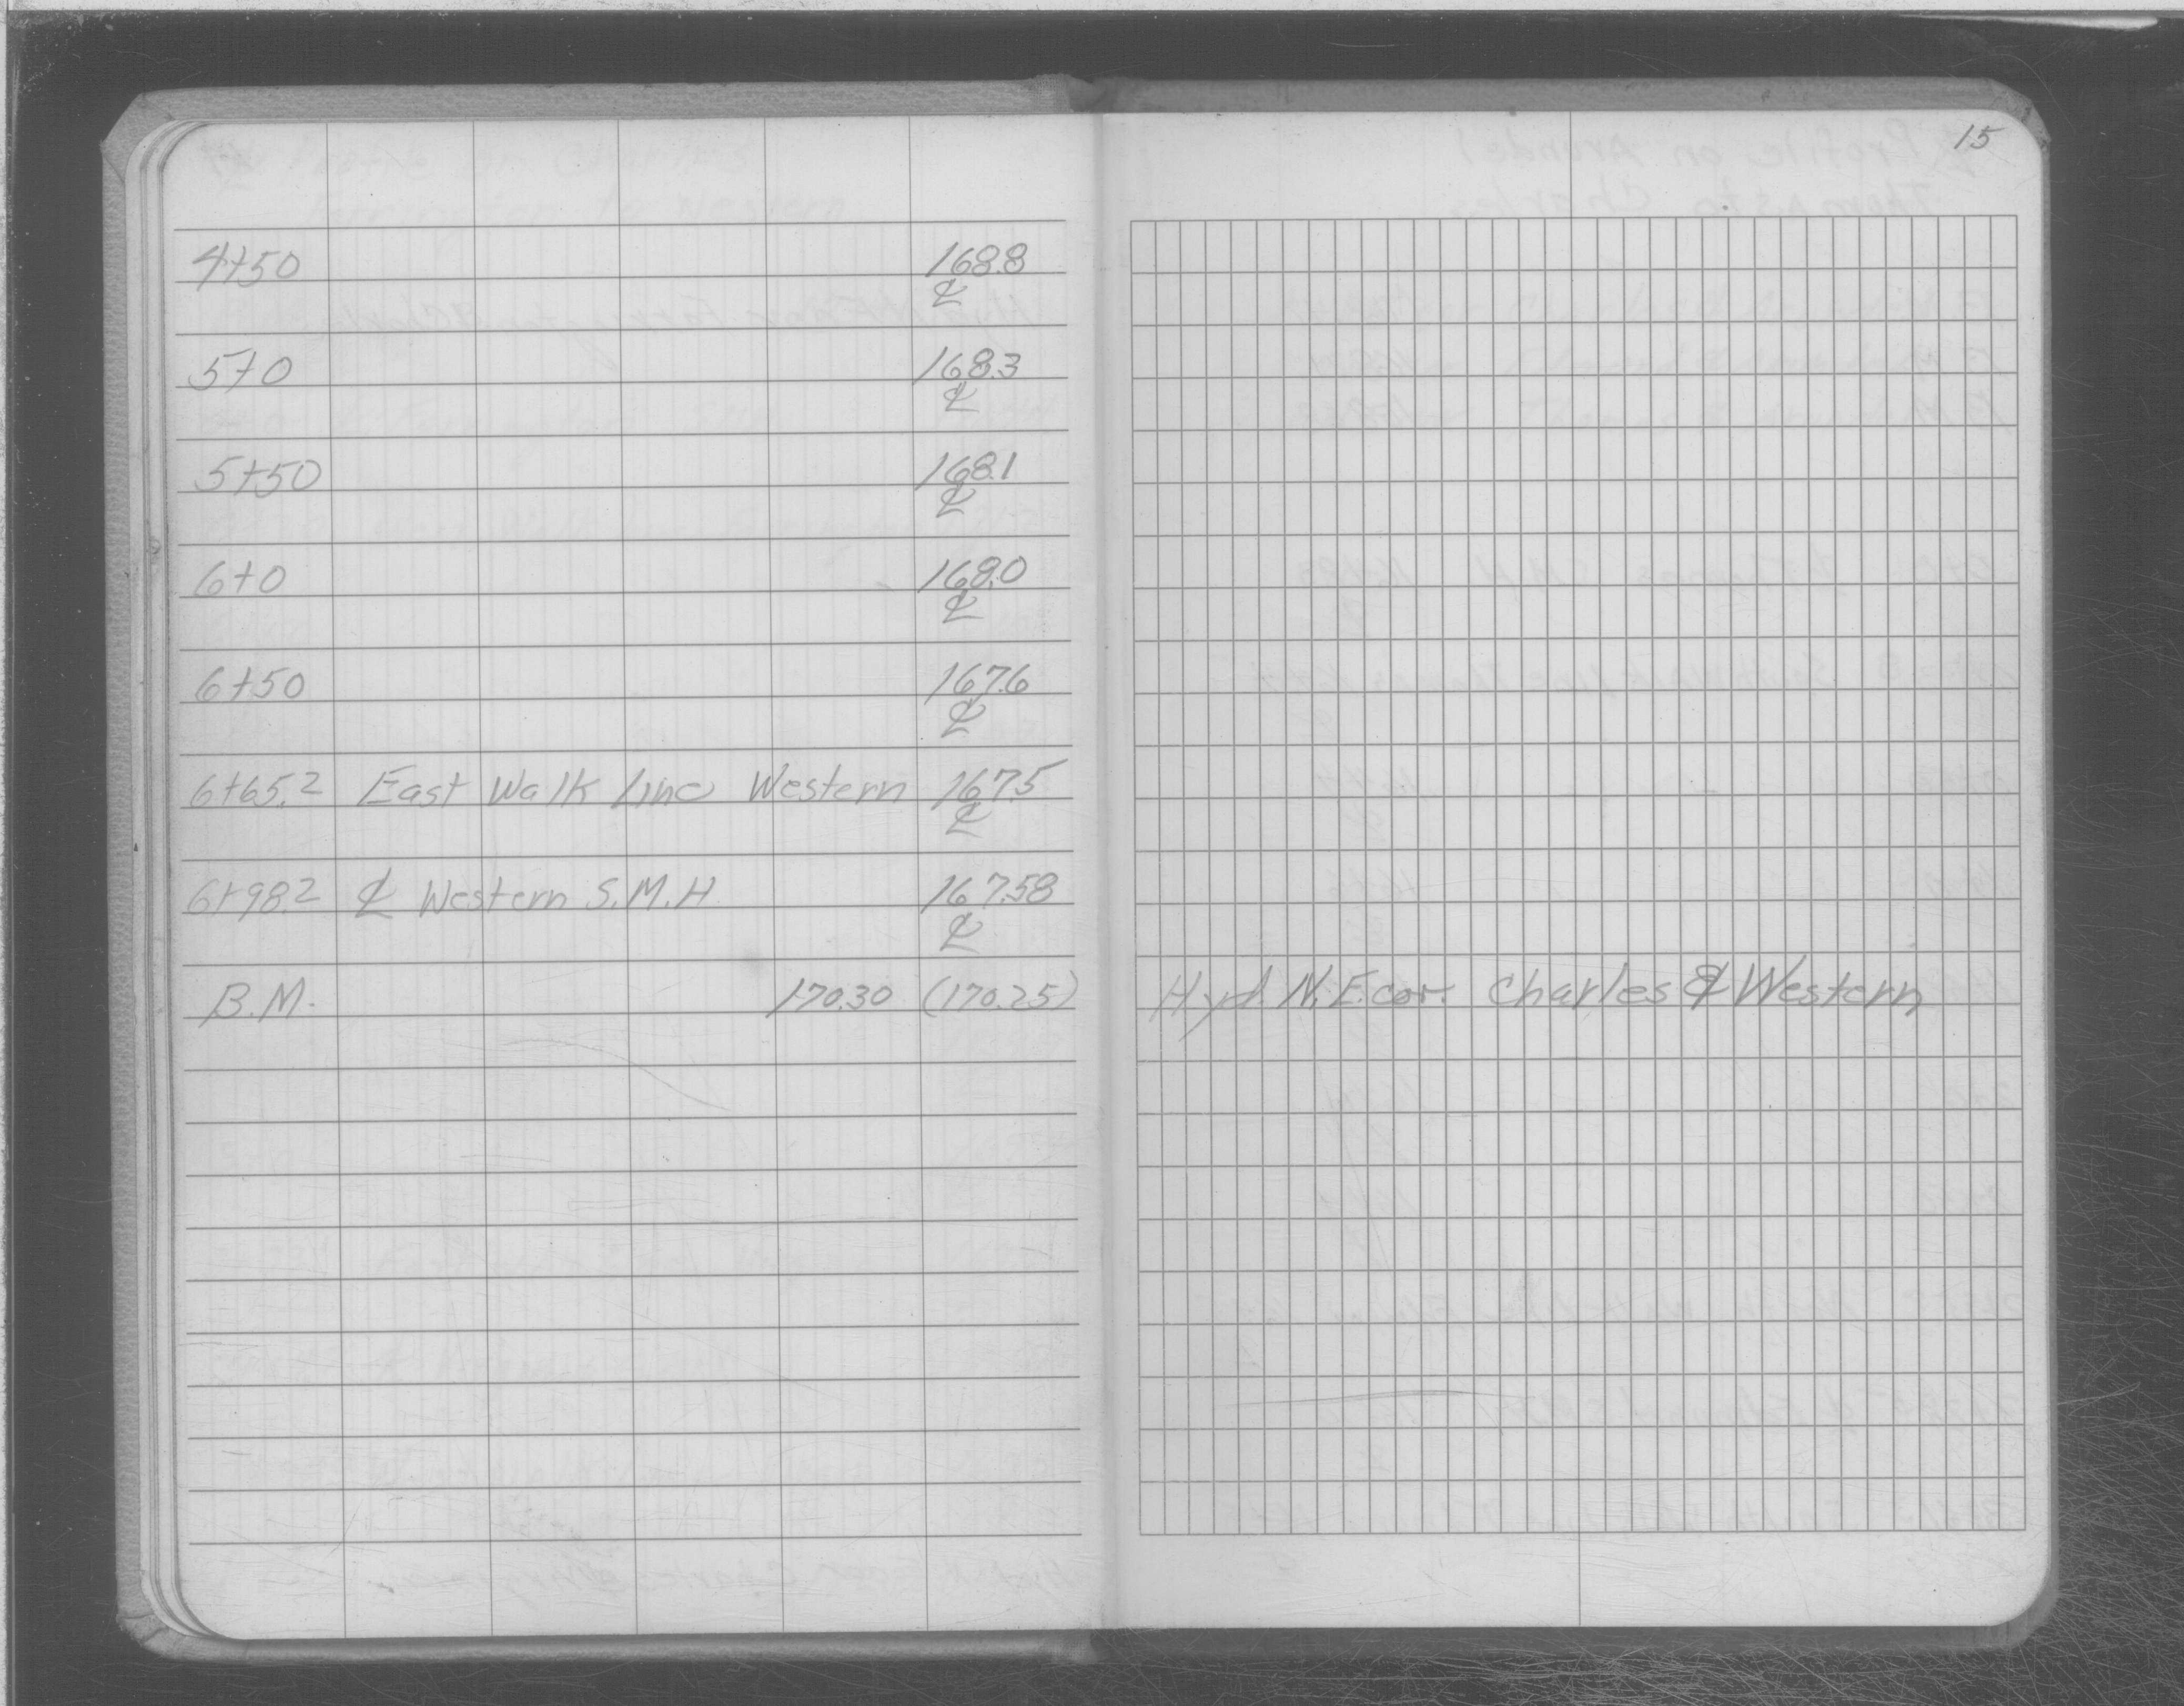 15
4+50 168.8
℄
5+0 168.3
℄
5+50 168.1
℄
6+0 168.0
℄
6+50 167.6
℄
6+65.2 East Walk line Western 167.5
℄
6+98.2 ℄ Western S.M.H. 167.58
℄
B.M. 170.30 (170.25) Hyd. N.E. cor. Charles & Western